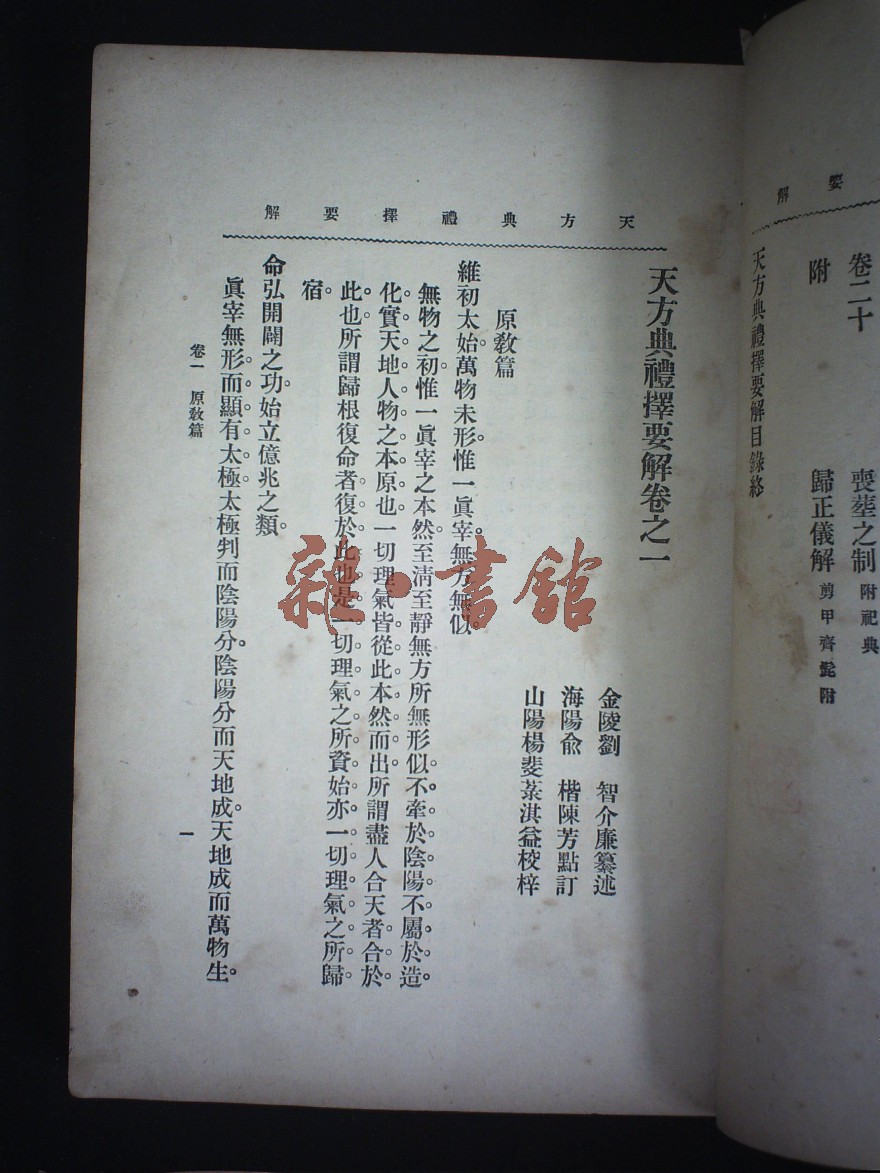 解要
卷二十　喪塟之制附祀典
附　歸正儀解剪甲齊髭附
天方典禮擇要解目錄終
天方典禮擇要解
天方典禮擇要解卷之一
金陵劉　智介廉纂述
海陽兪　楷陳芳點訂
山陽楊斐菉淇益校梓
原教篇
維初太始萬物未形。惟一眞宰無方無似。
無物之初惟一眞宰之本然至淸至靜無方所無形似不牽於陰陽不屬於造
化實天地人物之本原也一切理氣皆從此本然而出所謂盡人合天者合於
此也所謂歸根復命者復於此也是一切理氣之所資始亦一切理氣之所歸
宿。
命弘開闢之功。始立億兆之類。
眞宰無形而顯有太極太極判而陰陽分。陰陽分而天地成。天地成而萬物生。
卷一　原教篇
一
雜·書館